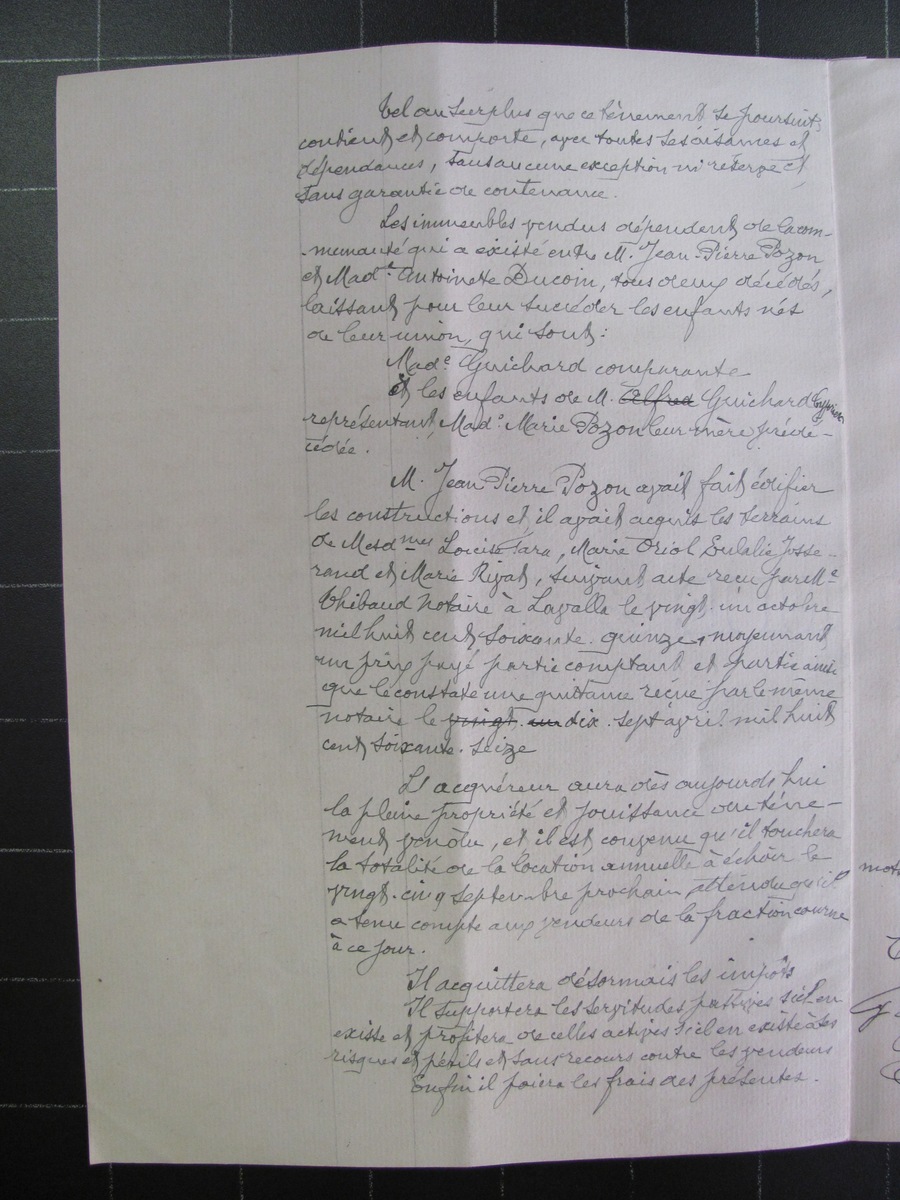 Tel au surplus que ce tènement se poursuit,
contient et comporte, avec toutes ses aisames et
dépendances, sans aucune exception ni réserve et
sans garantie de contenance.
Les immeubles vendus dépendent de la com-
munauté qui a existé entre M. Jean Pierre Pozon
et Made Antoinette Ducoin, tous deux décédés,
laissant pour leur succéder les enfants nés
de leur union, qui sont :
Made Guichard comparante
Et les enfants de M. Alfred Guichard
représentant Made Marie Pozon leur mère prédé-
cédée.
M. Jean Pierre Pozon avait fait édifier
les constructions et il avait acquis les terrains
de Mesdmes Louise Fara, Marie Oriol, Eulalie Josse-
rand et Marie Rivat, suivant acte reçu par Me
Thibaud notaire à Lavalla le vingt-un octobre
mil huit cent soixante-quinze, moyennant
un prix payé partie comptant et partie ainsi
que le constate une quittance reçue par le même
notaire le vingt-un dix-sept avril mil huit
cent soixante-seize
L'acquéreur aura dès aujourd'hui
la pleine propriété et jouissance du tène-
ment vendu, et il est convenu qu'il touchera
la totalité de la location annuelle à échoir le
vingt-cinq septembre prochain, attendu qu'il
a tenu compte aux vendeurs de la fraction courue
à ce jour.
Il acquittera désormais les impôts
Il supportera les servitudes passives s'il en
existe et profitera de celles actives s'il en existe à ses
risques et périls et sans recours contre les vendeurs
Enfin il paiera les frais des présentes.